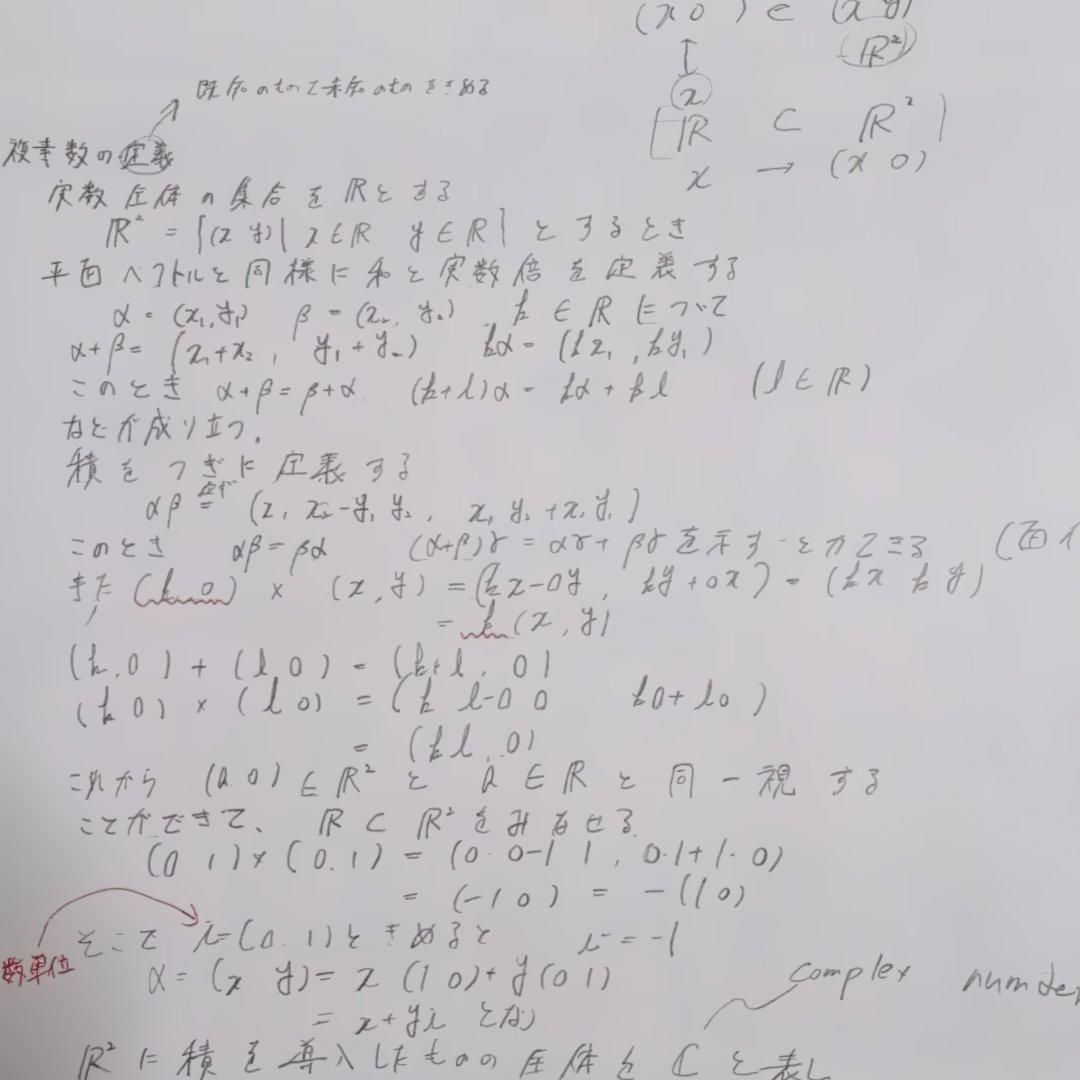 (x 0) ∈ (x y)
↕ (ℝ²)
x
[ℝ ⊂ ℝ²]
x → (x 0)
既知のもので未知のものをきめる
複素数の定義
実数全体の集合をℝとする
ℝ² = {(x y) | x∈ℝ y∈ℝ} とするとき
平面ベクトルと同様に和と実数倍を定義する
α = (x₁, y₁) β = (x₂, y₂) k ∈ ℝ について
α+β = (x₁+x₂, y₁+y₂) kα = (kx₁, ky₁)
このとき α+β = β+α (k+l)α = kα + kl (l ∈ ℝ)
などが成り立つ.
積をつぎに定義する
αβ = (x₁ x₂ - y₁ y₂, x₁ y₂ + x₂ y₁)
このとき αβ = βα (α+β)γ = αγ + βγ を示すことができる (面
また (k 0) × (x, y) = (kx-0y, ky+0x) = (kx ky)
= k (x, y)
(k, 0) + (l, 0) = (k+l, 0)
(k 0) × (l 0) = (k l-0 0 k0 + l0)
= (kl, 0)
これから (a 0) ∈ ℝ² と a ∈ ℝ と同一視する
ことができて、 ℝ ⊂ ℝ² をみなせる
(0 1) × (0.1) = (0·0-1 1, 0·1+1·0)
= (-1 0) = -(1 0)
そこで i=(0.1)ときめると i² = -1
数単位
α = (x y) = x (1 0) + y (0 1)
= x+yi となり
complex number
ℝ²に積を導入したものの全体をℂと表し